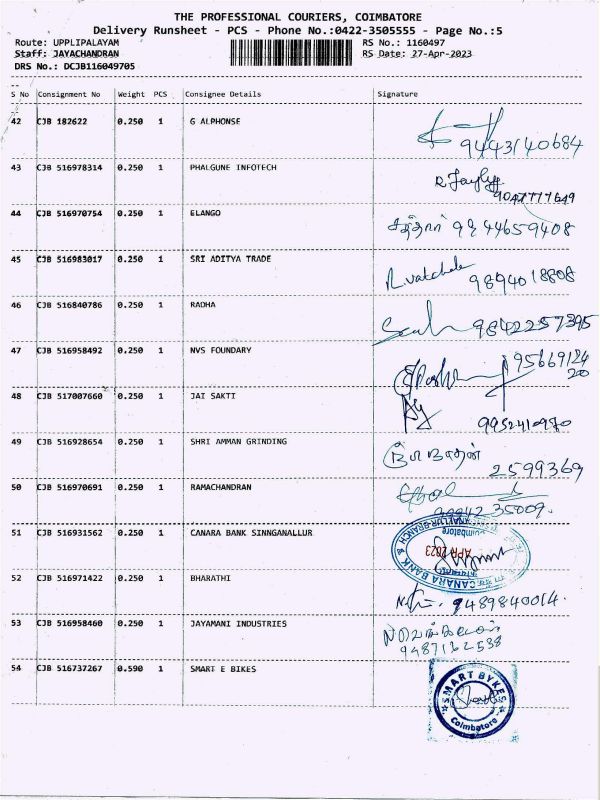 THE PROFESSIONAL COURIERS, COIMBATORE
Delivery Runsheet - PCS - Phone No.:0422-3505555 - Page No.:5
Route: UPPLIPALAYAM RS No.: 1160497
Staff: JAYACHANDRAN RS Date: 27-Apr-2023
DRS No.: DCJB116049705
S No Consignment No Weight PCS Consignee Details Signature
42 CJB 182622 0.250 1 G ALPHONSE
9443140684
43 CJB 516978314 0.250 1 PHALGUNE INFOTECH
9047777649
44 CJB 516970754 0.250 1 ELANGO
45 CJB 516983017 0.250 1 SRI ADITYA TRADE
9894018808
46 CJB 516840786 0.250 1 RADHA
9842257395
47 CJB 516958492 0.250 1 NVS FOUNDARY
95669184
20
48 CJB 517007660 0.250 1 JAI SAKTI
9952410970
49 CJB 516928654 0.250 1 SHRI AMMAN GRINDING
2599369
50 CJB 516970691 0.250 1 RAMACHANDRAN
51 CJB 516931562 0.250 1 CANARA BANK SINNGANALLUR
CANARA BANK
Coimbatore
APR 2023
52 CJB 516971422 0.250 1 BHARATHI
9489840014.
53 CJB 516958460 0.250 1 JAYAMANI INDUSTRIES
9487162538
54 CJB 516737267 0.590 1 SMART E BIKES
SMART BYKES
Coimbatore